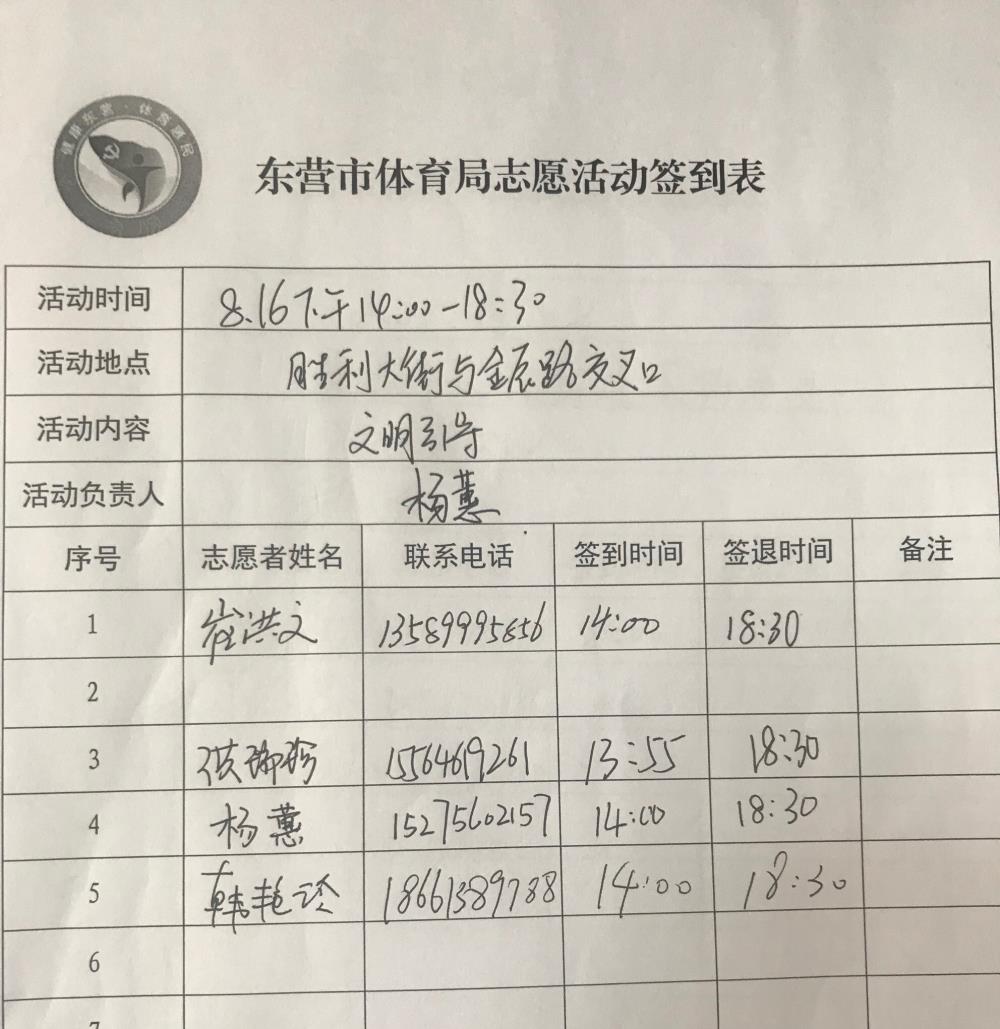 健康东营·体育惠民
东营市体育局志愿活动签到表
活动时间 8.16下午14:00-18:30
活动地点 胜利大街与金辰路交叉口
活动内容 文明引导
活动负责人 杨蕙
序号 志愿者姓名 联系电话 签到时间 签退时间 备注
1 崔洪文 13589995856 14:00 18:30
2
3 15564619261 13:55 18:30
4 杨蕙 15275602157 14:00 18:30
5 韩艳玲 18661389788 14:00 18:30
6
7